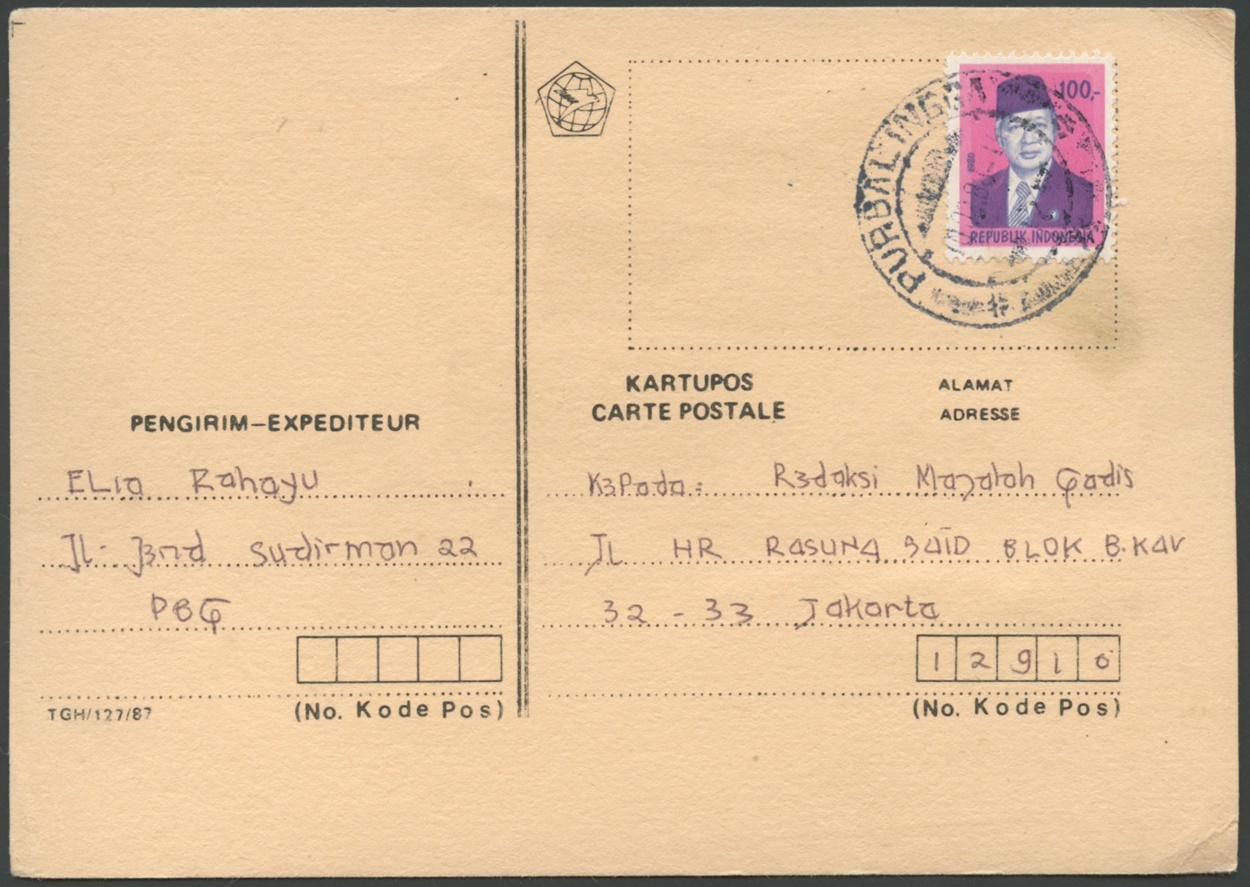 PENGIRIM–EXPEDITEUR
ELia Rahayu
Jl. Jend Sudirman 22
PBG
(No. Kode Pos)
TGH/127/87
PURBALINGGA
100,-
1980
REPUBLIK INDONESIA
KARTUPOS
CARTE POSTALE
ALAMAT
ADRESSE
Kepada : Redaksi Majalah Gadis
JL HR RASUNA SAID BLOK B.KAV
32 - 33 Jakarta
12910
(No. Kode Pos)